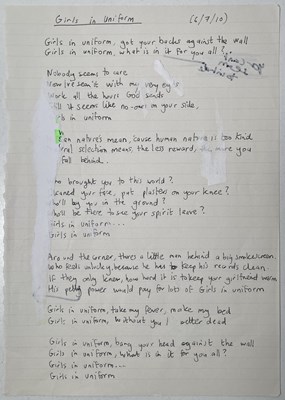 Girls in Uniform (6/7/10)
Girls in uniform, got your backs against the wall
Girls in uniform, what is in it for you all
Nobody seems to care
seen it with my very eyes
Work all the hours God sends
it seems like no-one's on your side,
in uniform
nature's mean, 'cause human nature is too kind
selection means, the less reward, more you
fall behind.
brought you to this world?
cleaned your face, put plasters on your knee?
by you in the ground?
be there to see your spirit leave?
Girls in uniform...
Girls in uniform
Around the corner, there's a little man behind a big smokescreen.
Who feels unlucky, because he has to keep his records clean.
If they only knew, how hard it is to keep your girlfriend warm
His petty power would pay for lots of Girls in uniform
Girls in uniform, take my fever, make my bed
Girls in uniform, without you I better dead
Girls in uniform, bang your head against the wall
Girls in uniform, what is in it for you all?
Girls in uniform...
Girls in uniform